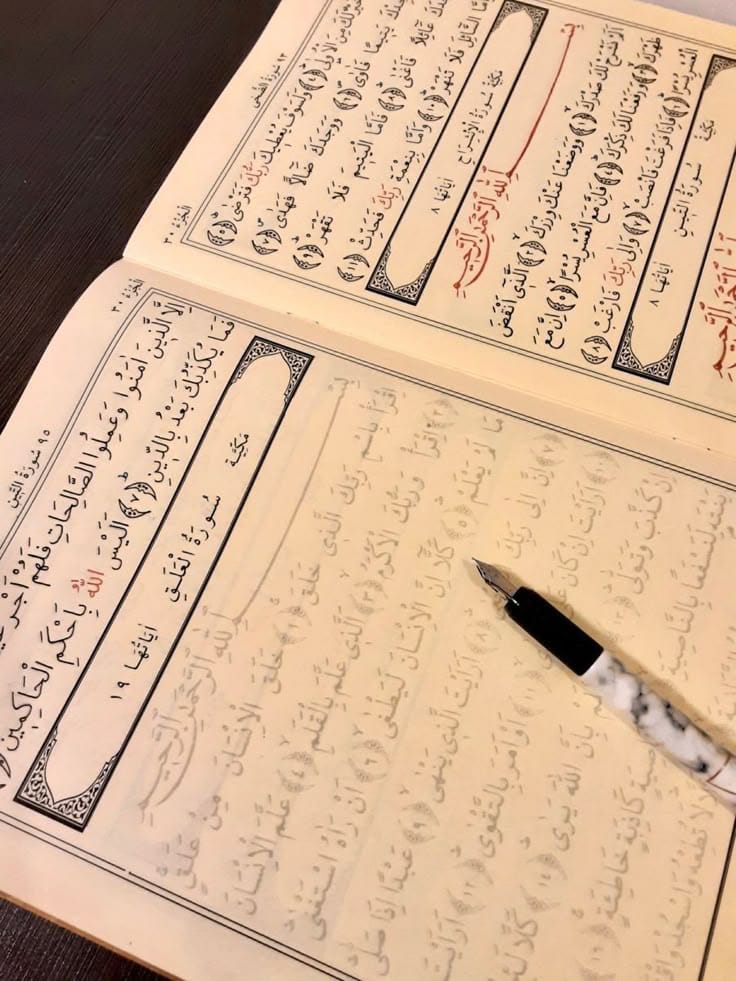 ٩٣ سُورَةُ الضُّحٰى
اَلْجُزْءُ ٣٠
لَكَ مِنَ الْاُولٰى ﴿٤﴾ وَلَسَوْفَ يُعْطِيكَ رَبُّكَ فَتَرْضٰى ﴿٥﴾
يَتِيمًا فَاٰوٰى ﴿٦﴾ وَوَجَدَكَ ضَالًّا فَهَدٰى ﴿٧﴾
عَائِلًا فَاَغْنٰى ﴿٨﴾ فَاَمَّا الْيَتِيمَ فَلَا تَقْهَرْ ﴿٩﴾
السَّائِلَ فَلَا تَنْهَرْ ﴿١٠﴾ وَاَمَّا بِنِعْمَةِ رَبِّكَ فَحَدِّثْ ﴿١١﴾
مَكِّيَّةٌ سُورَةُ الْاِنْشِرَاحِ اٰيَاتُهَا ٨
بِسْمِ اللّٰهِ الرَّحْمٰنِ الرَّحِيمِ
اَلَمْ نَشْرَحْ لَكَ صَدْرَكَ ﴿١﴾ وَوَضَعْنَا عَنْكَ وِزْرَكَ ﴿٢﴾ اَلَّذِى اَنْقَضَ
ظَهْرَكَ ﴿٣﴾ وَرَفَعْنَا لَكَ ذِكْرَكَ ﴿٤﴾ فَاِنَّ مَعَ الْعُسْرِ يُسْرًا ﴿٥﴾ اِنَّ مَعَ
الْعُسْرِ يُسْرًا ﴿٦﴾ فَاِذَا فَرَغْتَ فَانْصَبْ ﴿٧﴾ وَاِلٰى رَبِّكَ فَارْغَبْ ﴿٨﴾
مَكِّيَّةٌ سُورَةُ التِّينِ اٰيَاتُهَا ٨
اللّٰهِ الرَّحْمٰنِ الرَّحِيمِ
٩٥ سُورَةُ التِّينِ
اَلْجُزْءُ ٣٠
اِلَّا الَّذِينَ اٰمَنُوا وَعَمِلُوا الصَّالِحَاتِ فَلَهُمْ اَجْرٌ
فَمَا يُكَذِّبُكَ بَعْدُ بِالدِّينِ ﴿٧﴾ اَلَيْسَ اللّٰهُ بِاَحْكَمِ الْحَاكِمِينَ
مَكِّيَّةٌ سُورَةُ الْعَلَقِ اٰيَاتُهَا ١٩
بِسْمِ اللّٰهِ الرَّحْمٰنِ الرَّحِيمِ
اِقْرَأْ بِاسْمِ رَبِّكَ الَّذِى خَلَقَ ﴿١﴾ خَلَقَ الْاِنْسَانَ مِنْ عَلَقٍ
﴿٢﴾ اِقْرَأْ وَرَبُّكَ الْاَكْرَمُ ﴿٣﴾ اَلَّذِى عَلَّمَ بِالْقَلَمِ ﴿٤﴾ عَلَّمَ الْاِنْسَانَ
مَا لَمْ يَعْلَمْ ﴿٥﴾ كَلَّا اِنَّ الْاِنْسَانَ لَيَطْغٰى ﴿٦﴾ اَنْ رَاٰهُ اسْتَغْنٰى
﴿٧﴾ اِنَّ اِلٰى رَبِّكَ ﴿٨﴾ اَرَاَيْتَ الَّذِى يَنْهٰى ﴿٩﴾ عَبْدًا اِذَا صَلّٰى
﴿١٠﴾ اَرَاَيْتَ اِنْ كَانَ اَوْ اَمَرَ بِالتَّقْوٰى ﴿١٢﴾ اَرَاَيْتَ
اِنْ كَذَّبَ وَتَوَلّٰى ﴿١٣﴾ بِاَنَّ اللّٰهَ يَرٰى ﴿١٤﴾ كَلَّا
يَنْتَهِ لَنَسْفَعًا بِالنَّاصِيَةِ كَاذِبَةٍ خَاطِئَةٍ ﴿١٦﴾
لَا تُطِعْهُ وَاسْجُدْ